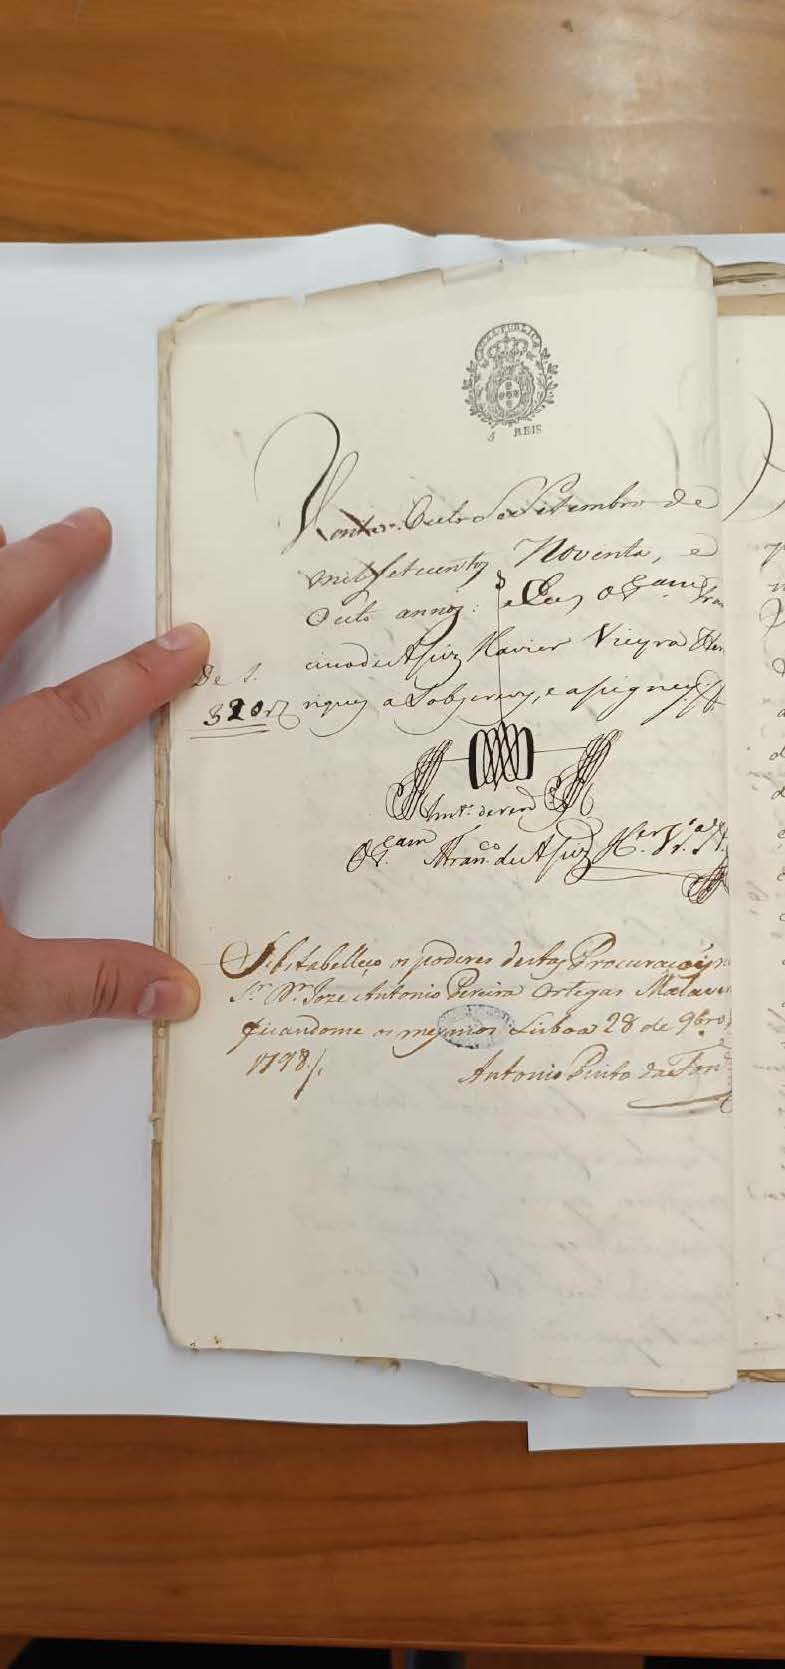 CAUZA PUBLICA
5 REIS
Vonte e Outo de Setembro de
mil setecentos Noventa, e
Outo annos: e Eu, O Tam. Fran
cisco de Asiz Xavier Vieyra Hen
riques a Sobscrevy, e asigney
De S.
320 rz
Em tº. de verd
O Tam Franco. de Asiz
Substabelleço os poderes destas Procuraçoins
Sr. Dr. Joze Antonio Pereira Ortegas Malave
ficandome os mesmos Lisboa 28 de 9bro
1798/.
Antonio Pinto da Fon